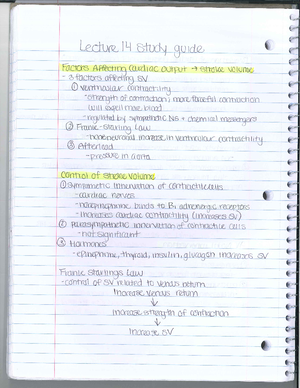 Lecture 14 Study guide
Factors Affecting Cardiac Output → Stroke Volume
- 3 factors affecting SV
① Ventricular contractility
- strength of contraction; more forceful contraction
will expel more blood
- regulated by sympathetic NS + chemical messengers
② Frank-Starling Law
- increase in ventricular contractility
③ Afterload
- pressure in aorta
Control of Stroke Volume
① Sympathetic innervation of contractile cells
- cardiac nerves
- norepinephrine binds to B₁ adrenergic receptors
- increases cardiac contractility (increases SV)
② Parasympathetic innervation of contractile cells
- not significant
③ Hormones
- epinephrine, thyroid, insulin, glucagon increases SV
Frank Starlings Law
- control of SV related to venous return
Increase venous return
↓
increase strength of contraction
↓
increase SV